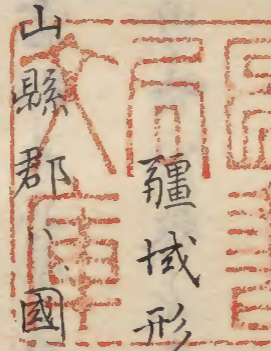 疆域形
山縣郡ハ、國